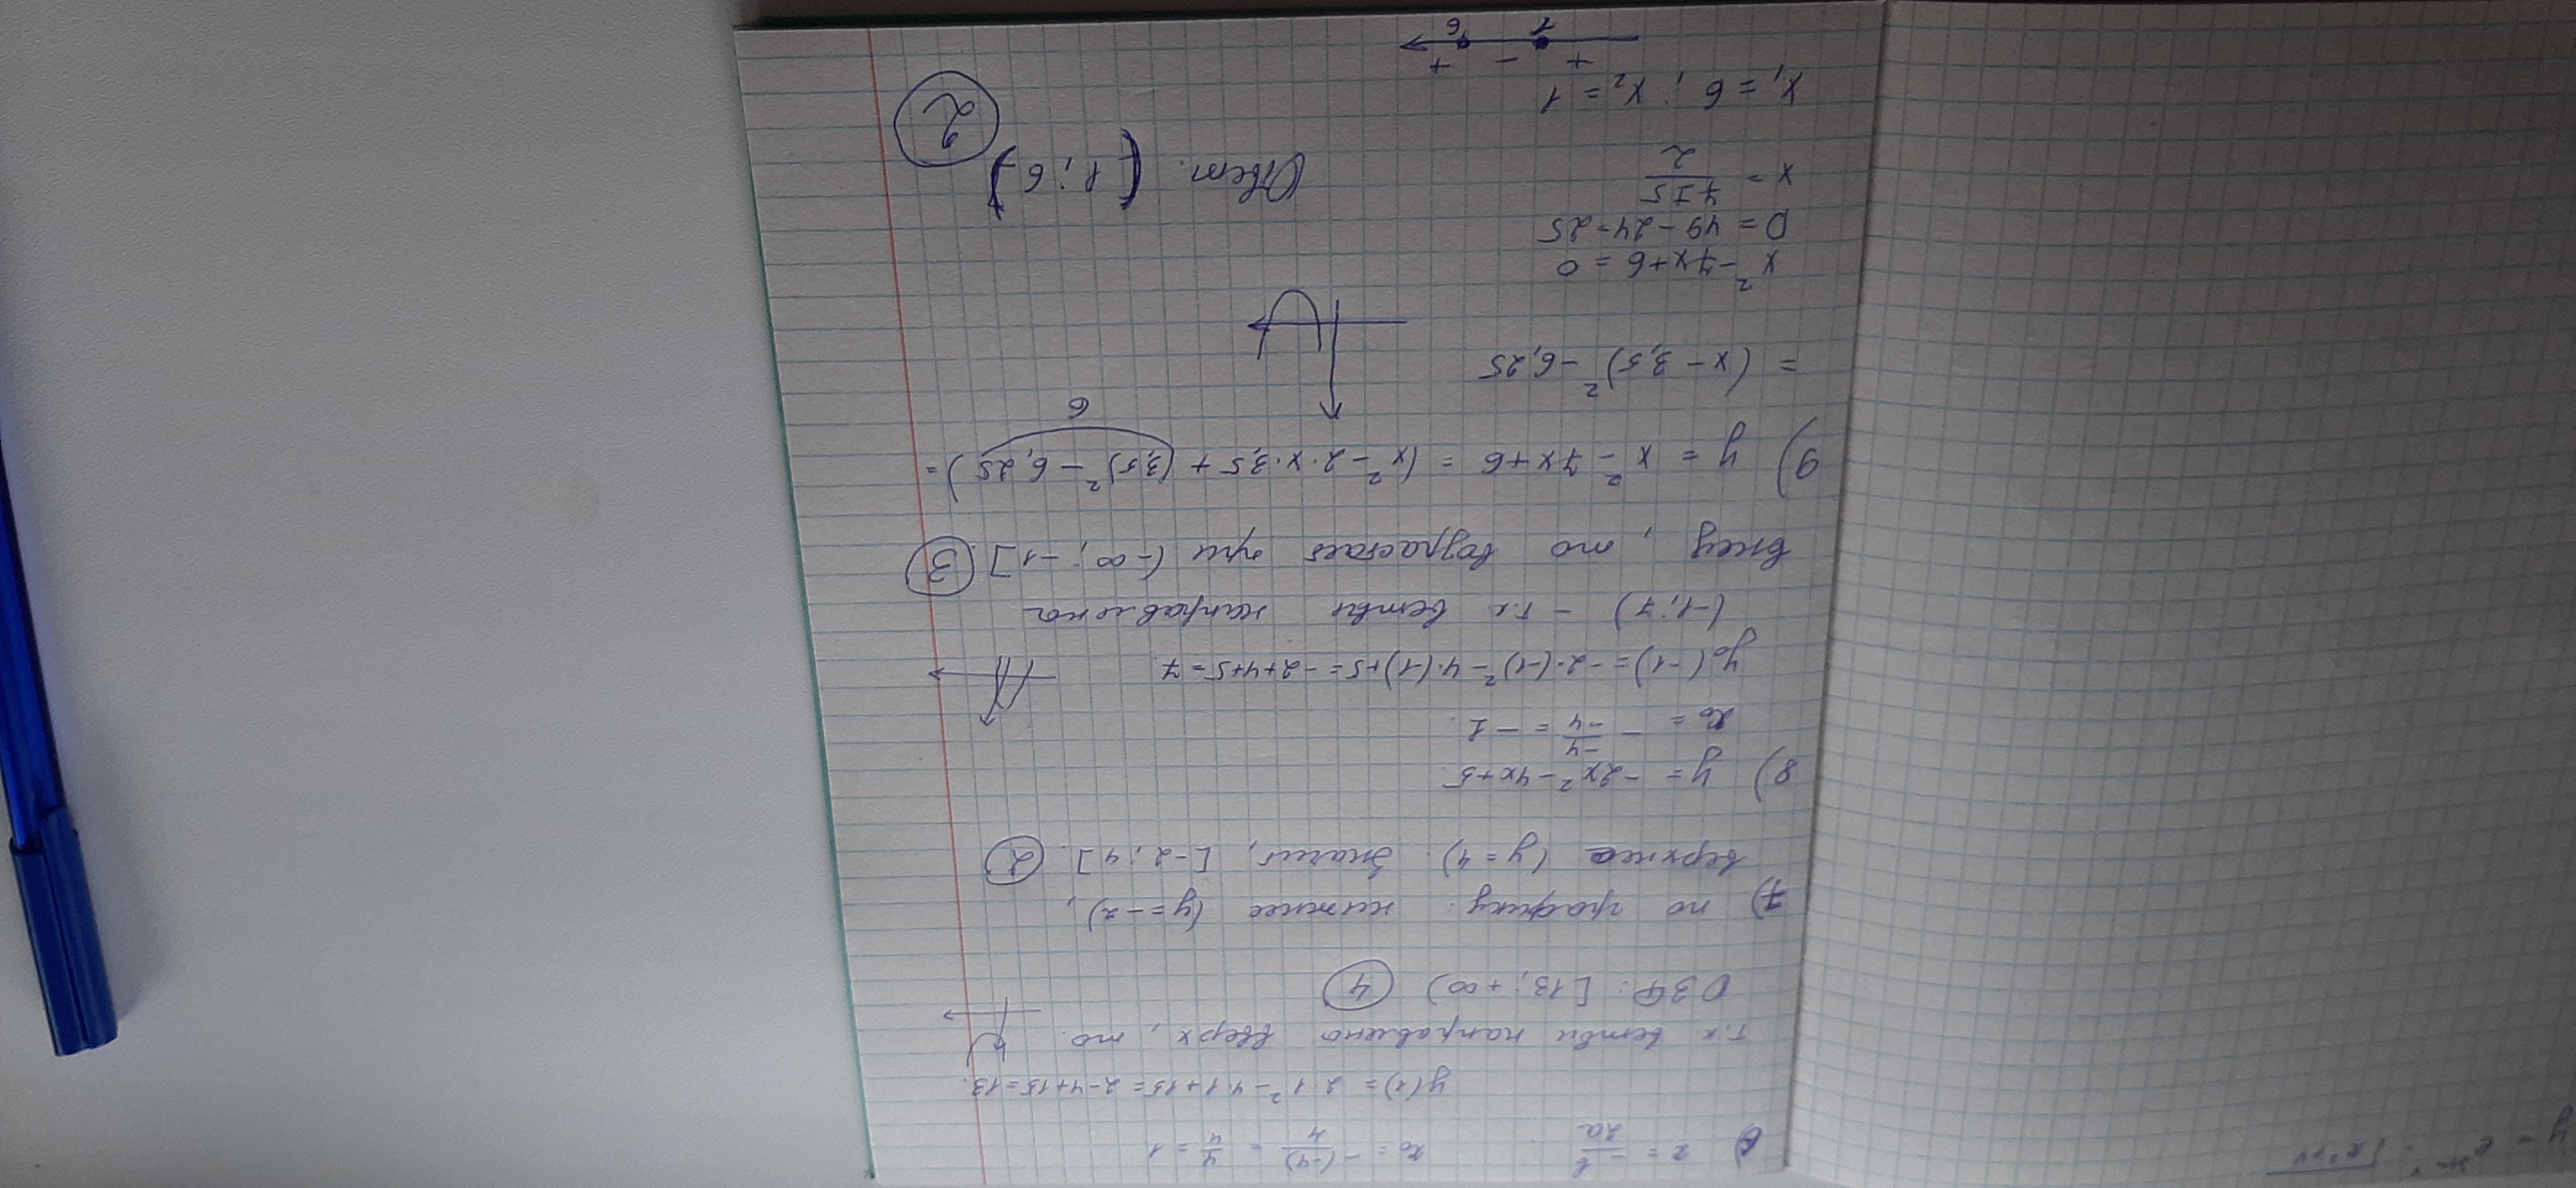 6) x = -b/2a x₀ = -(-4)/4 = 4/4 = 1
y(1) = 2·1² - 4·1 + 15 = 2 - 4 + 15 = 13.
т.к. ветви направлено вверх, то.
ОЗФ: [13; +∞) 4
7) по графику: нижнее (y = -2),
верхнее (y = 4). Значит, [-2; 4]. 2
8) y = -2x² - 4x + 5.
x₀ = - -4/-4 = -1.
y₀(-1) = -2·(-1)² - 4·(-1) + 5 = -2 + 4 + 5 = 7.
(-1; 7) - т.к. ветви направлено
вниз, то возрастает при (-∞; -1]. 3
9) y = x² - 7x + 6 = (x² - 2·x·3,5 + (3,5)² - 6,25) =
6
= (x - 3,5)² - 6,25
x² - 7x + 6 = 0
D = 49 - 24 = 25
x = 7±5/2
Ответ. (1; 6) 2
x₁ = 6; x₂ = 1
+ - +
1 6